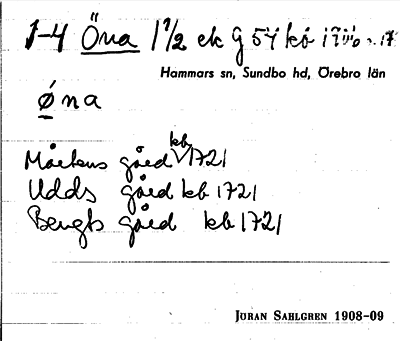 1-4 Öna 1 1/2 ek G 54 kb
Hammars sn, Sundbo hd, Örebro län
öna
Mårtens gård kb 1721
Udds gård kb 1721
Bengts gård kb 1721
JÖRAN SAHLGREN 1908-09